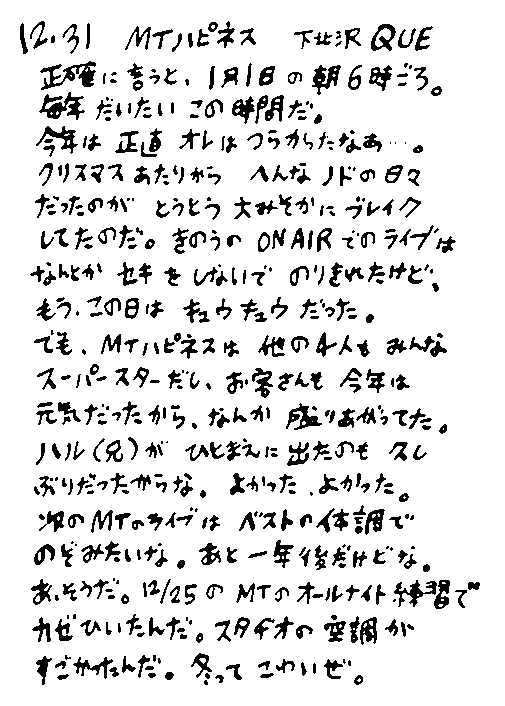 12.31 MTハピネス 下北沢 QUE
正確に言うと、1月1日の朝6時ごろ。
毎年だいたいこの時間だ。
今年は正直オレはつらかったなあ…。
クリスマスあたりから へんなノドの日々
だったのが とうとう大みそかにブレイク
してたのだ。きのうのON AIRでのライブは
なんとかセキをしないでのりきれたけど、
もう、この日はキュウキュウだった。
でも、MTハピネスは他の4人もみんな
スーパースターだし、お客さんも今年は
元気だったから、なんか盛りあがってた。
ハル(兄)がひとまえに出たのも久し
ぶりだったからな。よかった、よかった。
次のMTのライブはベストの体調で
のぞみたいな。あと一年後だけどな。
あ、そうだ。12/25のMTのオールナイト練習で
カゼひいたんだ。スタヂオの空調が
すごかったんだ。冬ってこわいぜ。